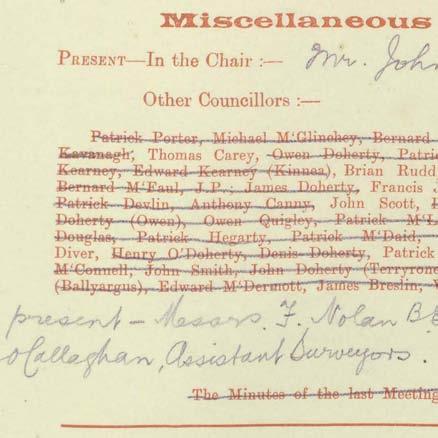 Miscellaneous
PRESENT—In the Chair :— Mr. John
Other Councillors :—
Patrick Porter, Michael M‘Glinchey, Bernard
Kavanagh, Thomas Carey, Owen Doherty, Patri
Kearney, Edward Kearney (Kinnea), Brian Rudd
Bernard M‘Faul, J.P.; James Doherty, Francis
Patrick Devlin, Anthony Canny, John Scott,
Doherty (Owen), Owen Quigley, Patrick M‘L
Douglas, Patrick Hegarty, Patrick M‘Daid,
Diver, Henry O'Doherty, Denis Doherty, Patrick
M‘Connell, John Smith, John Doherty (Terryrone
(Ballyargus), Edward M‘Dermott, James Breslin,
present - Messrs. F. Nolan B.E
O'Callaghan, Assistant Surveyors.
The Minutes of the last Meeting